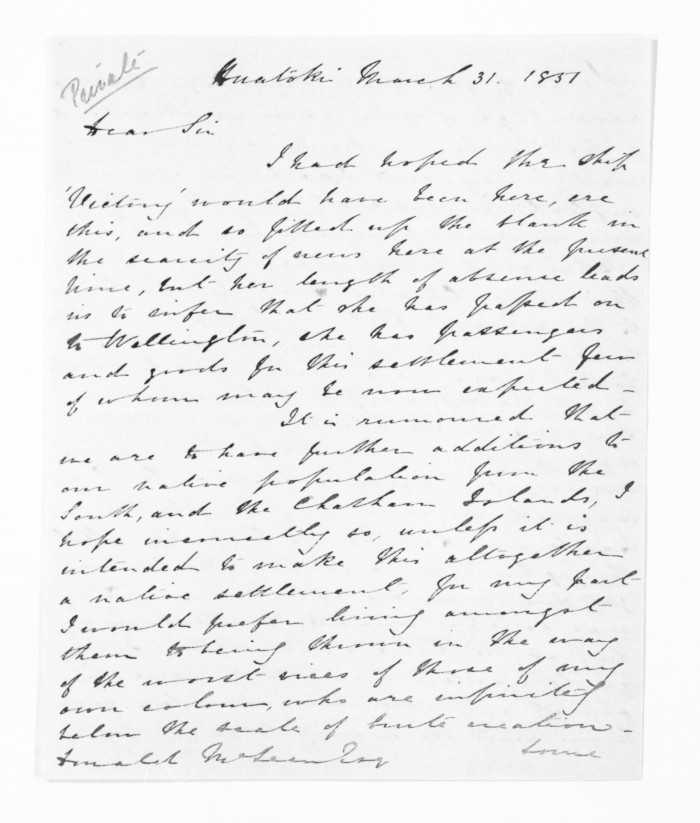 Private
Huatoki March 31. 1851
Dear Sir
I had hoped the ship
'Victory' would have been here, ere
this, and so filled up the blank in
the scarcity of news here at the present
time, but her length of absence leads
us to infer that she has passed on
to Wellington, she has passengers
and goods for this settlement few
of whom may be now expected -
It is rumoured that
we are to have further additions to
our native population from the
South, and the Chatham Islands, I
hope incorrectly so, unless it is
intended to make this altogether
a native settlement, for my part
I would prefer living amongst
them to being thrown in the way
of the worst vices of those of my
own colour, who are infinitely
below the scale of brute creation -
Donald McLean Esq some